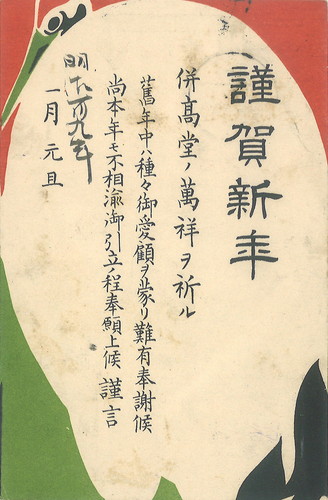 謹賀新年
併髙堂ノ萬祥ヲ祈ル
舊年中ハ種々御愛顧ヲ蒙リ難有奉謝候
尚本年モ不相渝御引立ノ程奉願上候 謹言
明治卅九年
一月元旦